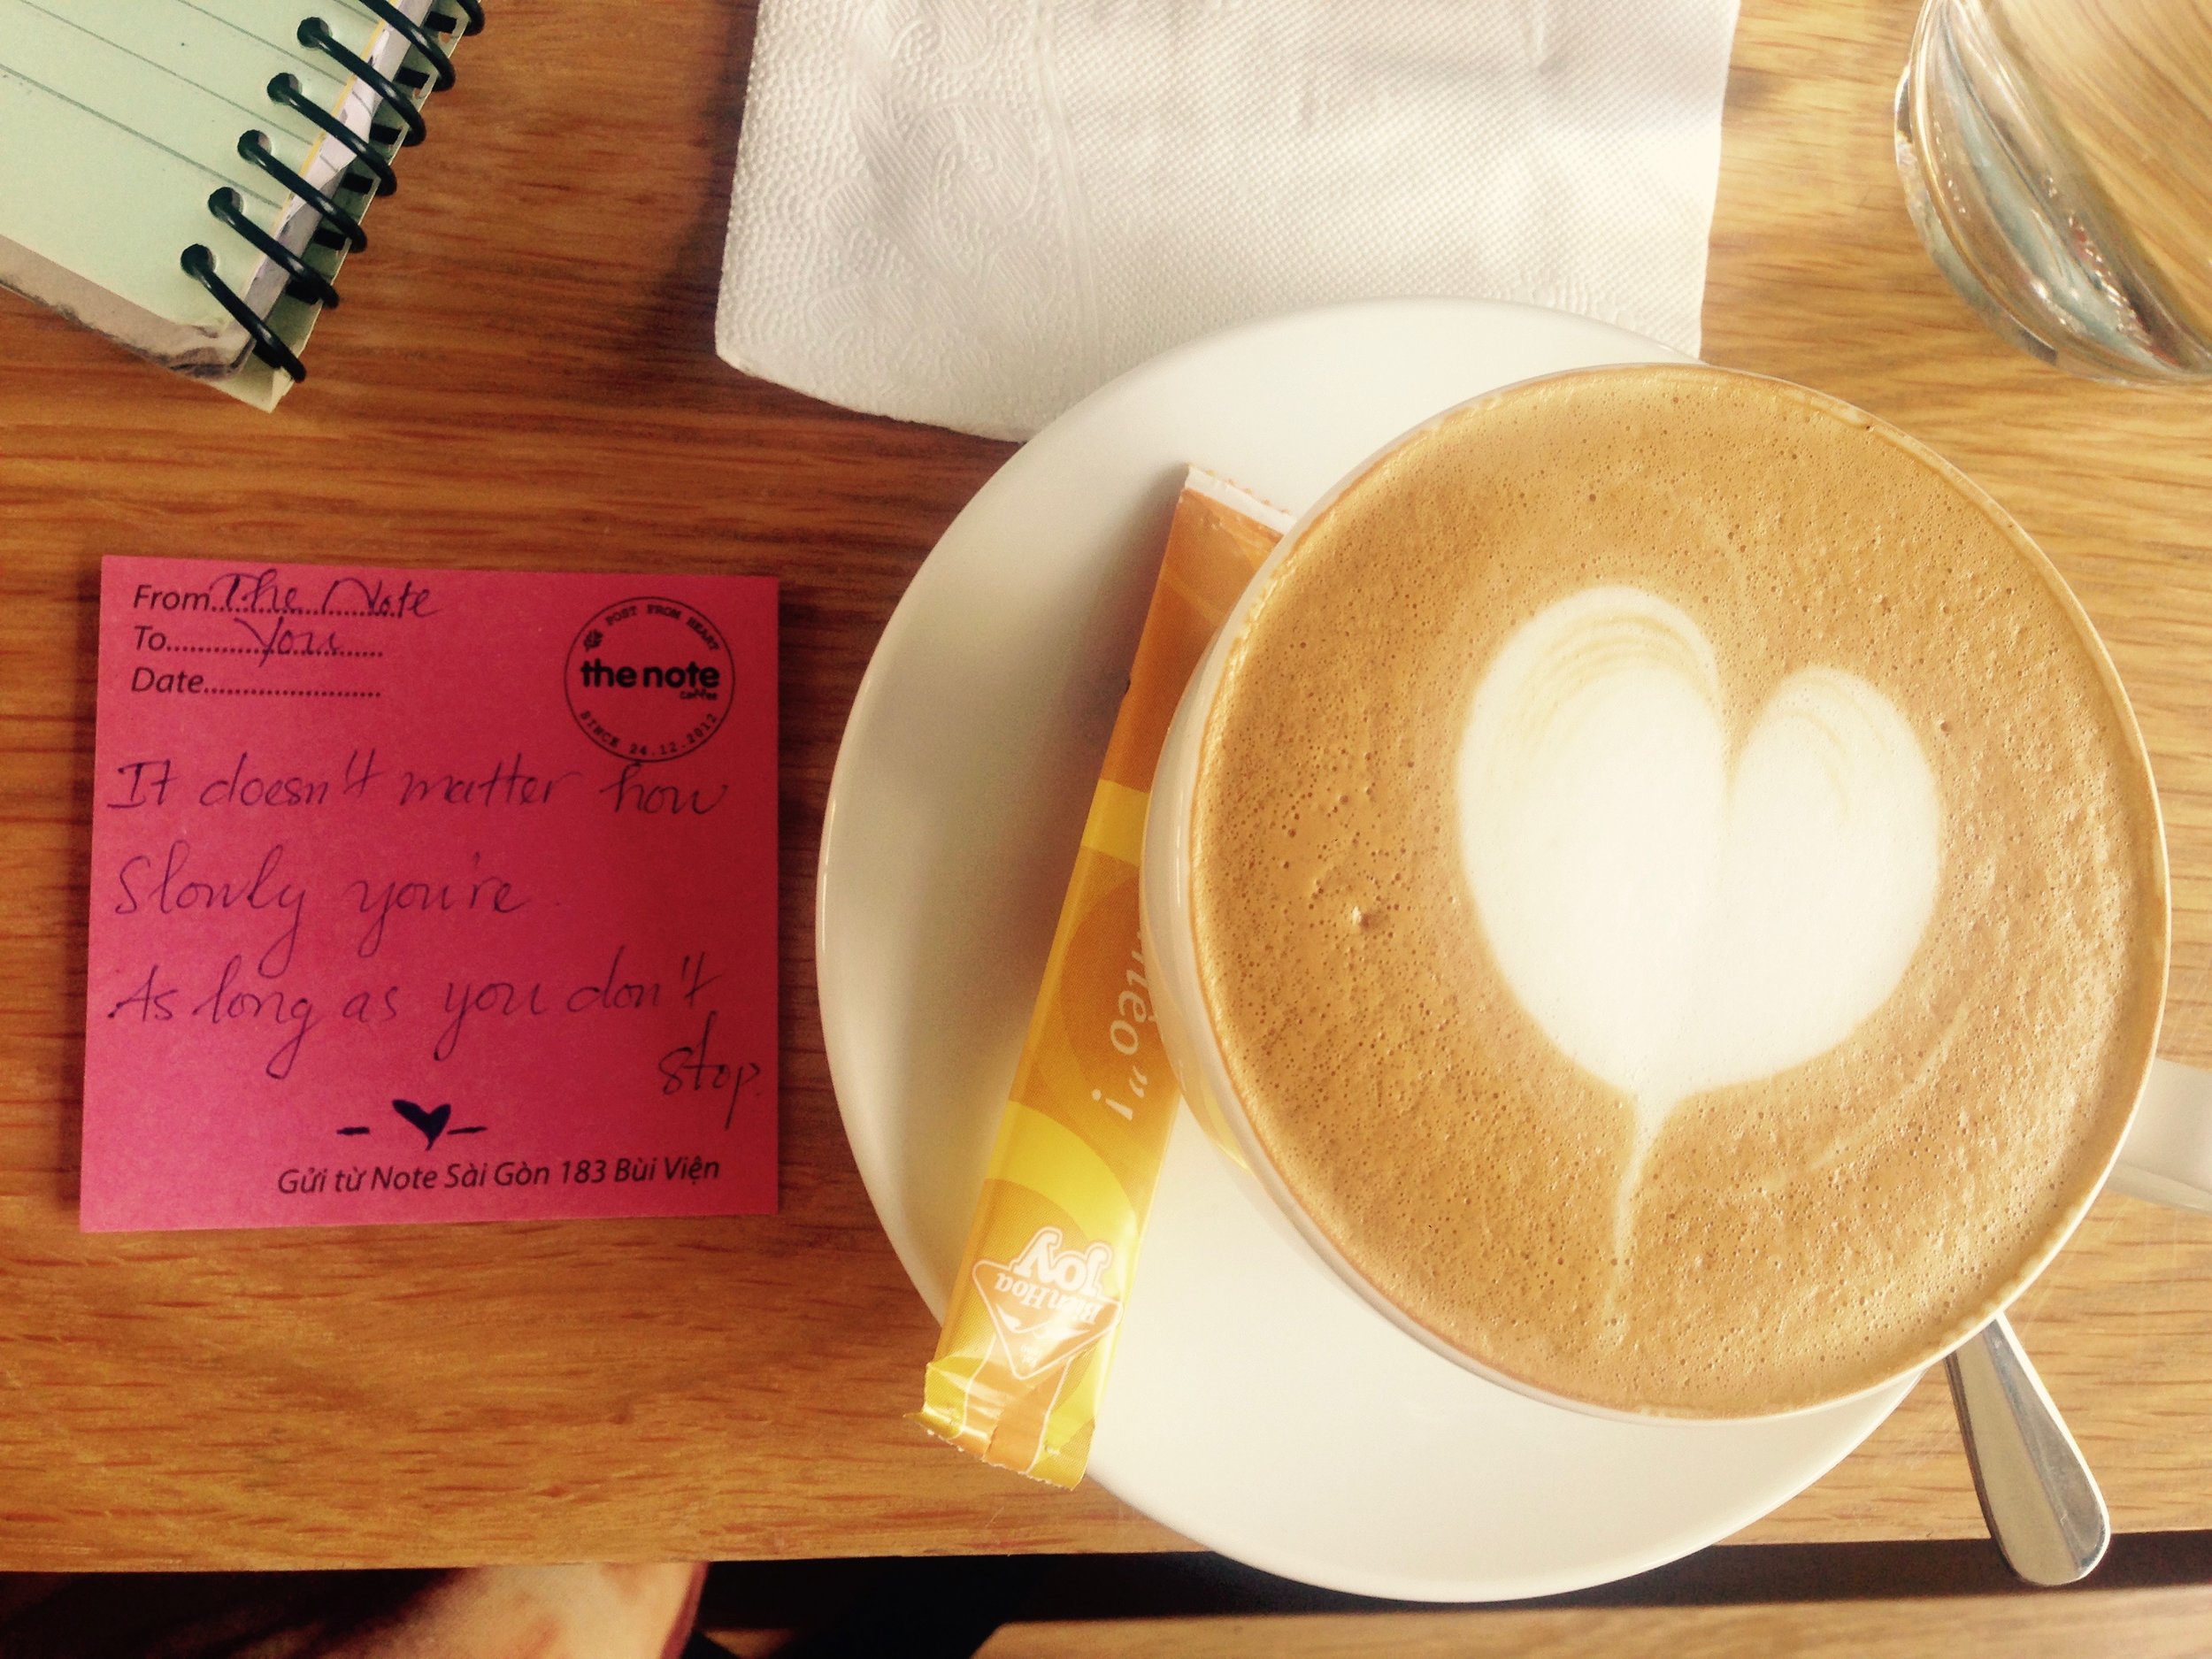 From The Note
To You
Date
POST FROM HEART
the note
coffee
SINCE 24.12.2012
It doesn't matter how
Slowly you're
As long as you don't
stop.
Gửi từ Note Sài Gòn 183 Bùi Viện
BienHoa
Joy